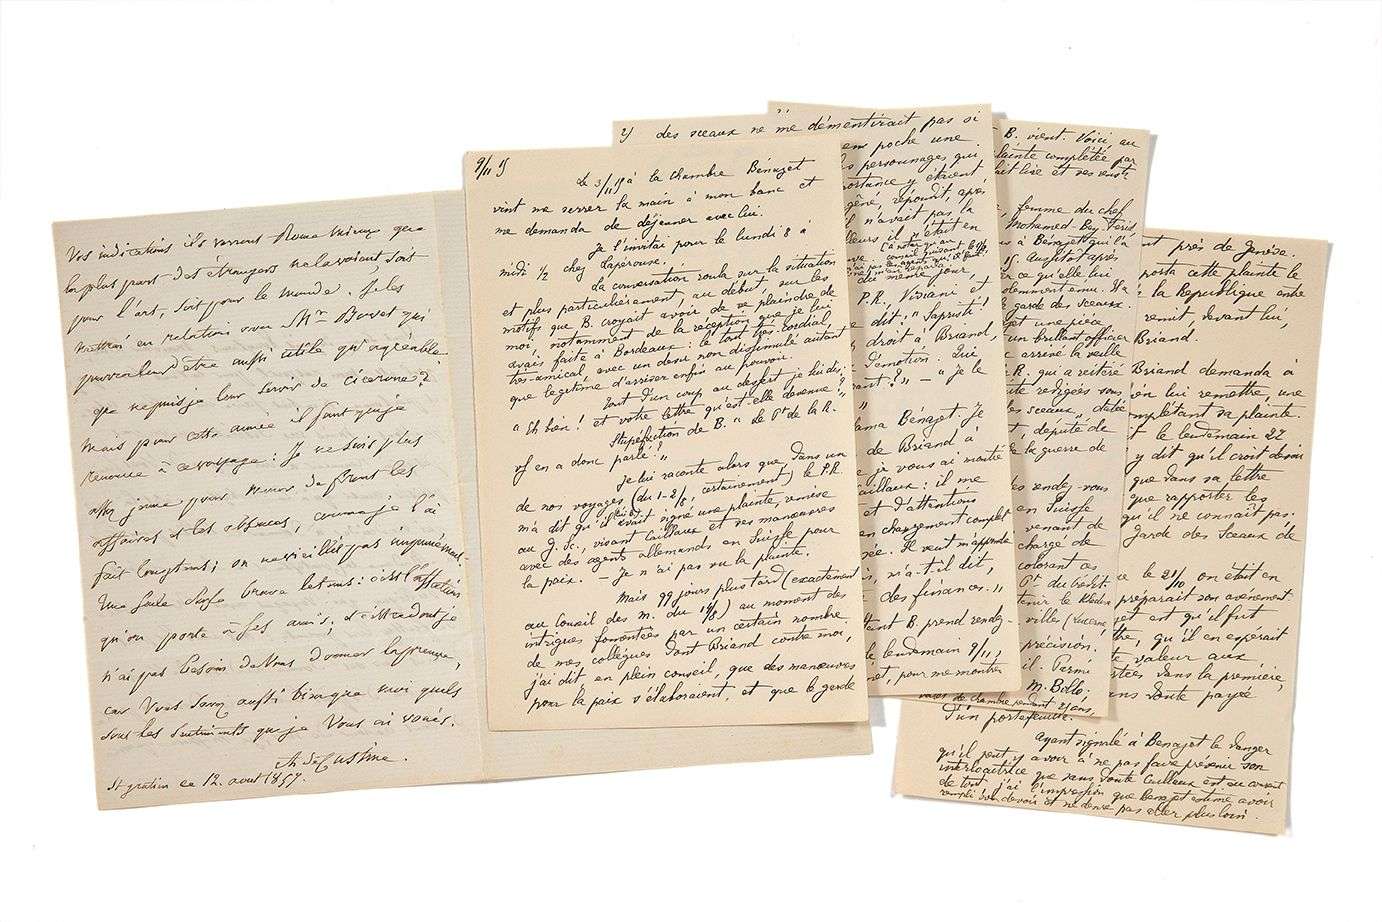 Vos indications ils verront Rome mieux que
la plus part des étrangers ne la voient, soit
pour l'art, soit pour le monde. Je les
mettrai en relations avec
pourra leur être aussi utile qu'agréable.
que ne puis-je leur servir de cicerone?
mais pour cette année il faut que je
renonce à ce voyage: Je ne suis plus
jeune pour mener de front les
affaires et les, comme je l'ai
fait longtems; on ne vieillit pas impunément.
Une seule chose brave le tems: c'est l'affection
qu'on porte à ses amis; et
n'ai pas besoin de vous donner la preuve,
car Vous savez aussi bien que moi quels
sont les sentiments que je Vous ai voués.
A. de Custine.
St gratien ce 12. aout 1857.
9/11 15
Le 3/11 15 à la Chambre Bénazet
vint me serrer la main à mon banc et
me demanda de déjeuner avec lui.
Je l'invitai pour le lundi 8 à
midi 1/2 chez Lapérouse.
La conversation roula sur la situation
et plus particulièrement, au début sur les
motifs que B. croyait avoir de se plaindre de
moi, notamment de la réception que je lui
avais faite à Bordeaux: le tout très cordial,
très-amical, avec un désir non dissimulé autant
que légitime d'arriver enfin au pouvoir.
Tout d'un coup au dessert je lui dis:
"Eh bien! et votre lettre qu'est-elle devenue?"
Stupéfaction de B. "Le Pt de la R.
vs en a donc parlé?"
Je lui raconte alors que dans un
de nos voyages (du 1-2/8, certainement) le P.R.
m'a dit qu'il avait signé une plainte, remise
au G. Sc., visant Caillaux et ses manœuvres
avec des agents allemands en Suisse pour
la paix. - Je n'ai pas vu la plainte.
Mais 99 jours plus tard (exactement
au Conseil des m. du) au moment des
intrigues fomentées par un certain nombre
de mes collègues dont Briand contre moi,
j'ai dit en plein conseil, que des manœuvres
pour la paix s'élaboraient, et que le garde
2) des sceaux ne me démentirait pas si
en poche une
personnages qui
portance y étaient
gêné, répondit, après
il n'avait pas la
leurs il était en
du même jour,
P.R. Viviani et
dit: "Sapristi!
droit à Briand,
d'émotion. Lui
" - "je le
ama Bénazet. Je
de Briand à
je vous ai montré
aillaux: il me
et d'attentions
changement complet
sée. Il veut m'apprendre
, m'a-t-il dit,
des finances."
tant B prend rendez-
le lendemain 9/11,
et, pour me montrer
B. vient. Voici, au
plainte complétée par
fait lire et
, femme du chef
Mohamed-Bey Férid
s à Bénazet qui l'a
15. Aussitôt après
er ce qu'elle lui
demment ému. Il a
le garde des Sceaux.
et une pièce
un brillant officier
arrivé la veille
R. qui a réitéré
te rédigée sous
des sceaux, datée
t député de
la guerre de
des rendez-vous
en Suisse
venant de
chargé de
colorant as
Pt du
tenir le
villes (Lucerne,
précision.
il. Parmi
M. Bolo,
de chambre pendant 21 ans,
nt près de Genève.
porta cette plainte le
e la République entre
remit, devant lui,
Briand.
Briand demanda à
bien lui remettre une
mplétant sa plainte.
t le lendemain 27
y dit qu'il croit devoir
que dans sa lettre
que rapporter les
qu'il ne connaît pas.
Garde des Sceaux de
e le 21/10 on était en
préparait son avènement
et est qu'il fut
tre, qu'il en espérait
e valeur aux
rtées dans la première,
sans doute payée
d'un portefeuille.
Ayant signalé à Benazet le danger
qu'il peut y avoir à ne pas faire prévenir son
interlocutrice que sans doute Caillaux est au courant
de tout, j'ai l'impression que Benazet estime avoir
rempli son devoir et ne devoir pas aller plus loin.